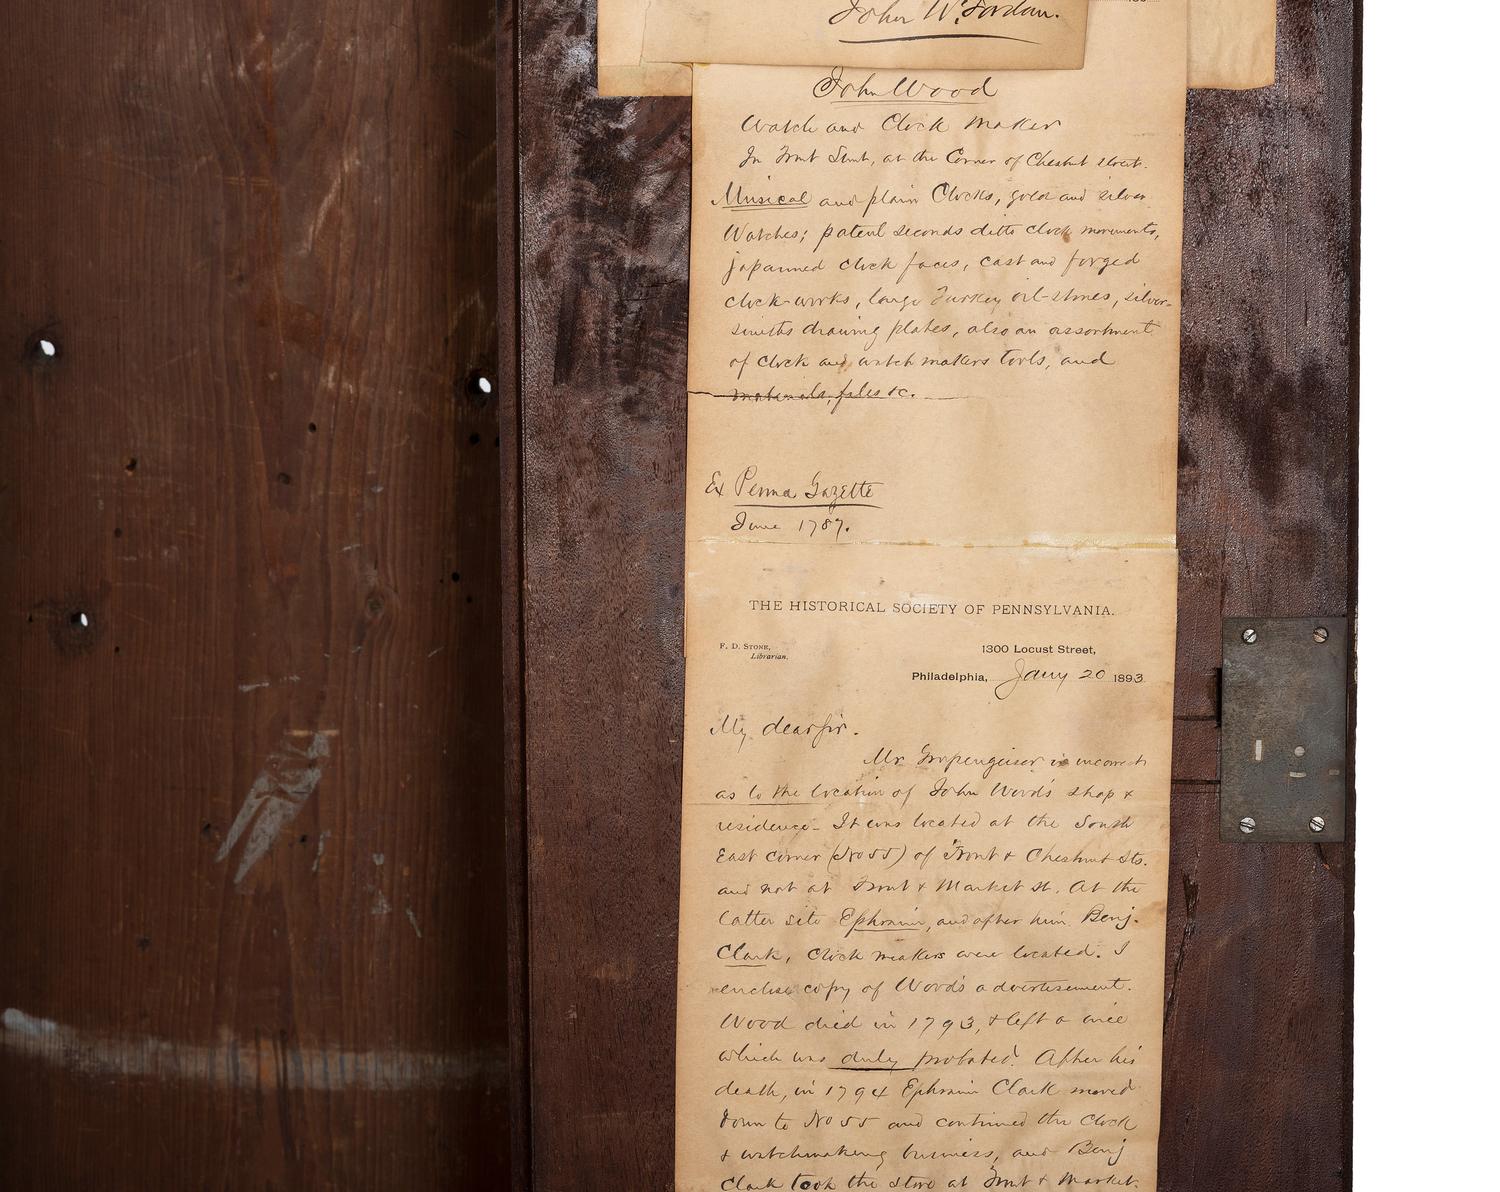 John W. Jordan.
John Wood
Watch and Clock Maker
In Front Street, at the Corner of Chesnut street.
Musical and plain Clocks, gold and silver
Watches; patent seconds ditto clock movements,
japanned clock faces, cast and forged
clock-works, large Turkey oil-stones, silver-
smiths drawing plates, also an assortment
of clock and watch makers tools, and
materials, files &c.
Ex Penna Gazette
June 1787.
THE HISTORICAL SOCIETY OF PENNSYLVANIA.
F. D. STONE,
Librarian.
1300 Locust Street,
Philadelphia, Jany 20 1893
My dear sir.
Mr is incorrect
as to the location of John Wood's shop &
residence - It was located at the South
East corner (No 55) of Front & Chestnut Sts.
and not at Front & Market St. At the
latter site Ephraim, and after him Benj.
Clark, clock makers were located. I
enclose copy of Wood's advertisement.
Wood died in 1793, & left a will
which was duly probated. After his
death, in 1794 Ephraim Clark moved
down to No 55 and continued the Clock
& watchmaking business, and Benj
Clark took the store at Front & Market.